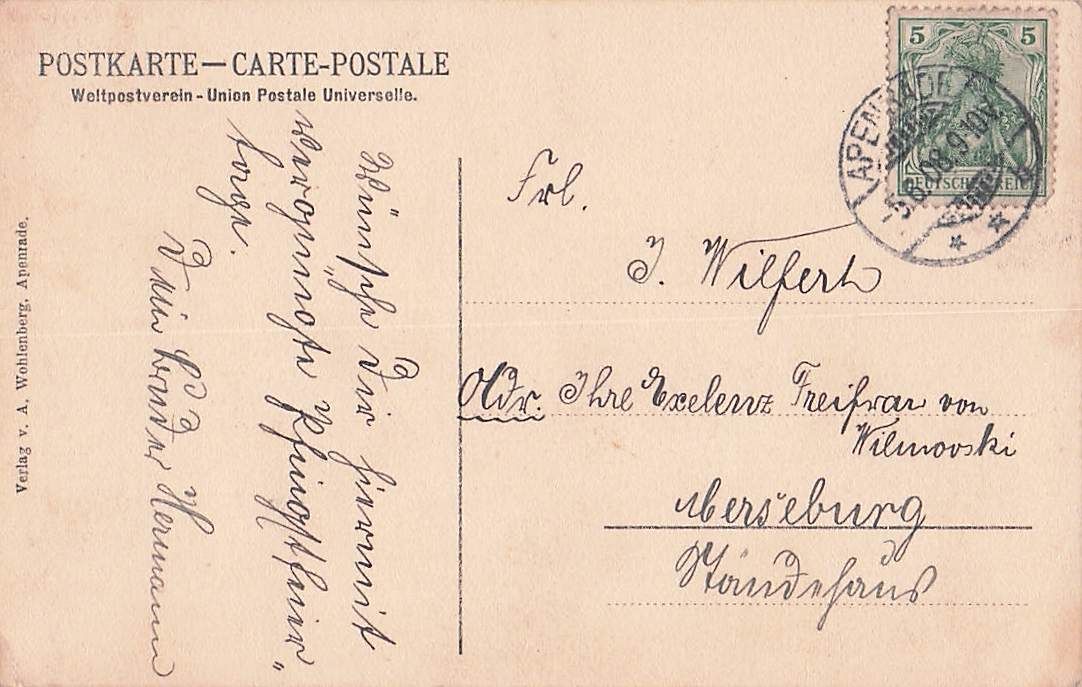 POSTKARTE — CARTE-POSTALE
Weltpostverein - Union Postale Universelle.
Wünsche Dir hiermit
vergnügte Pfingstfeier„
tage.
Dein Bruder Hermann
Verlag v. A. Wohlenberg, Apenrade.
5 5
DEUTSCHES REICH
APENRADE
08.9-10V
Frl.
J. Wilfert
Adr. Ihre Exelenz Freifrau von
Wilmovski
Merseburg
Ständehaus